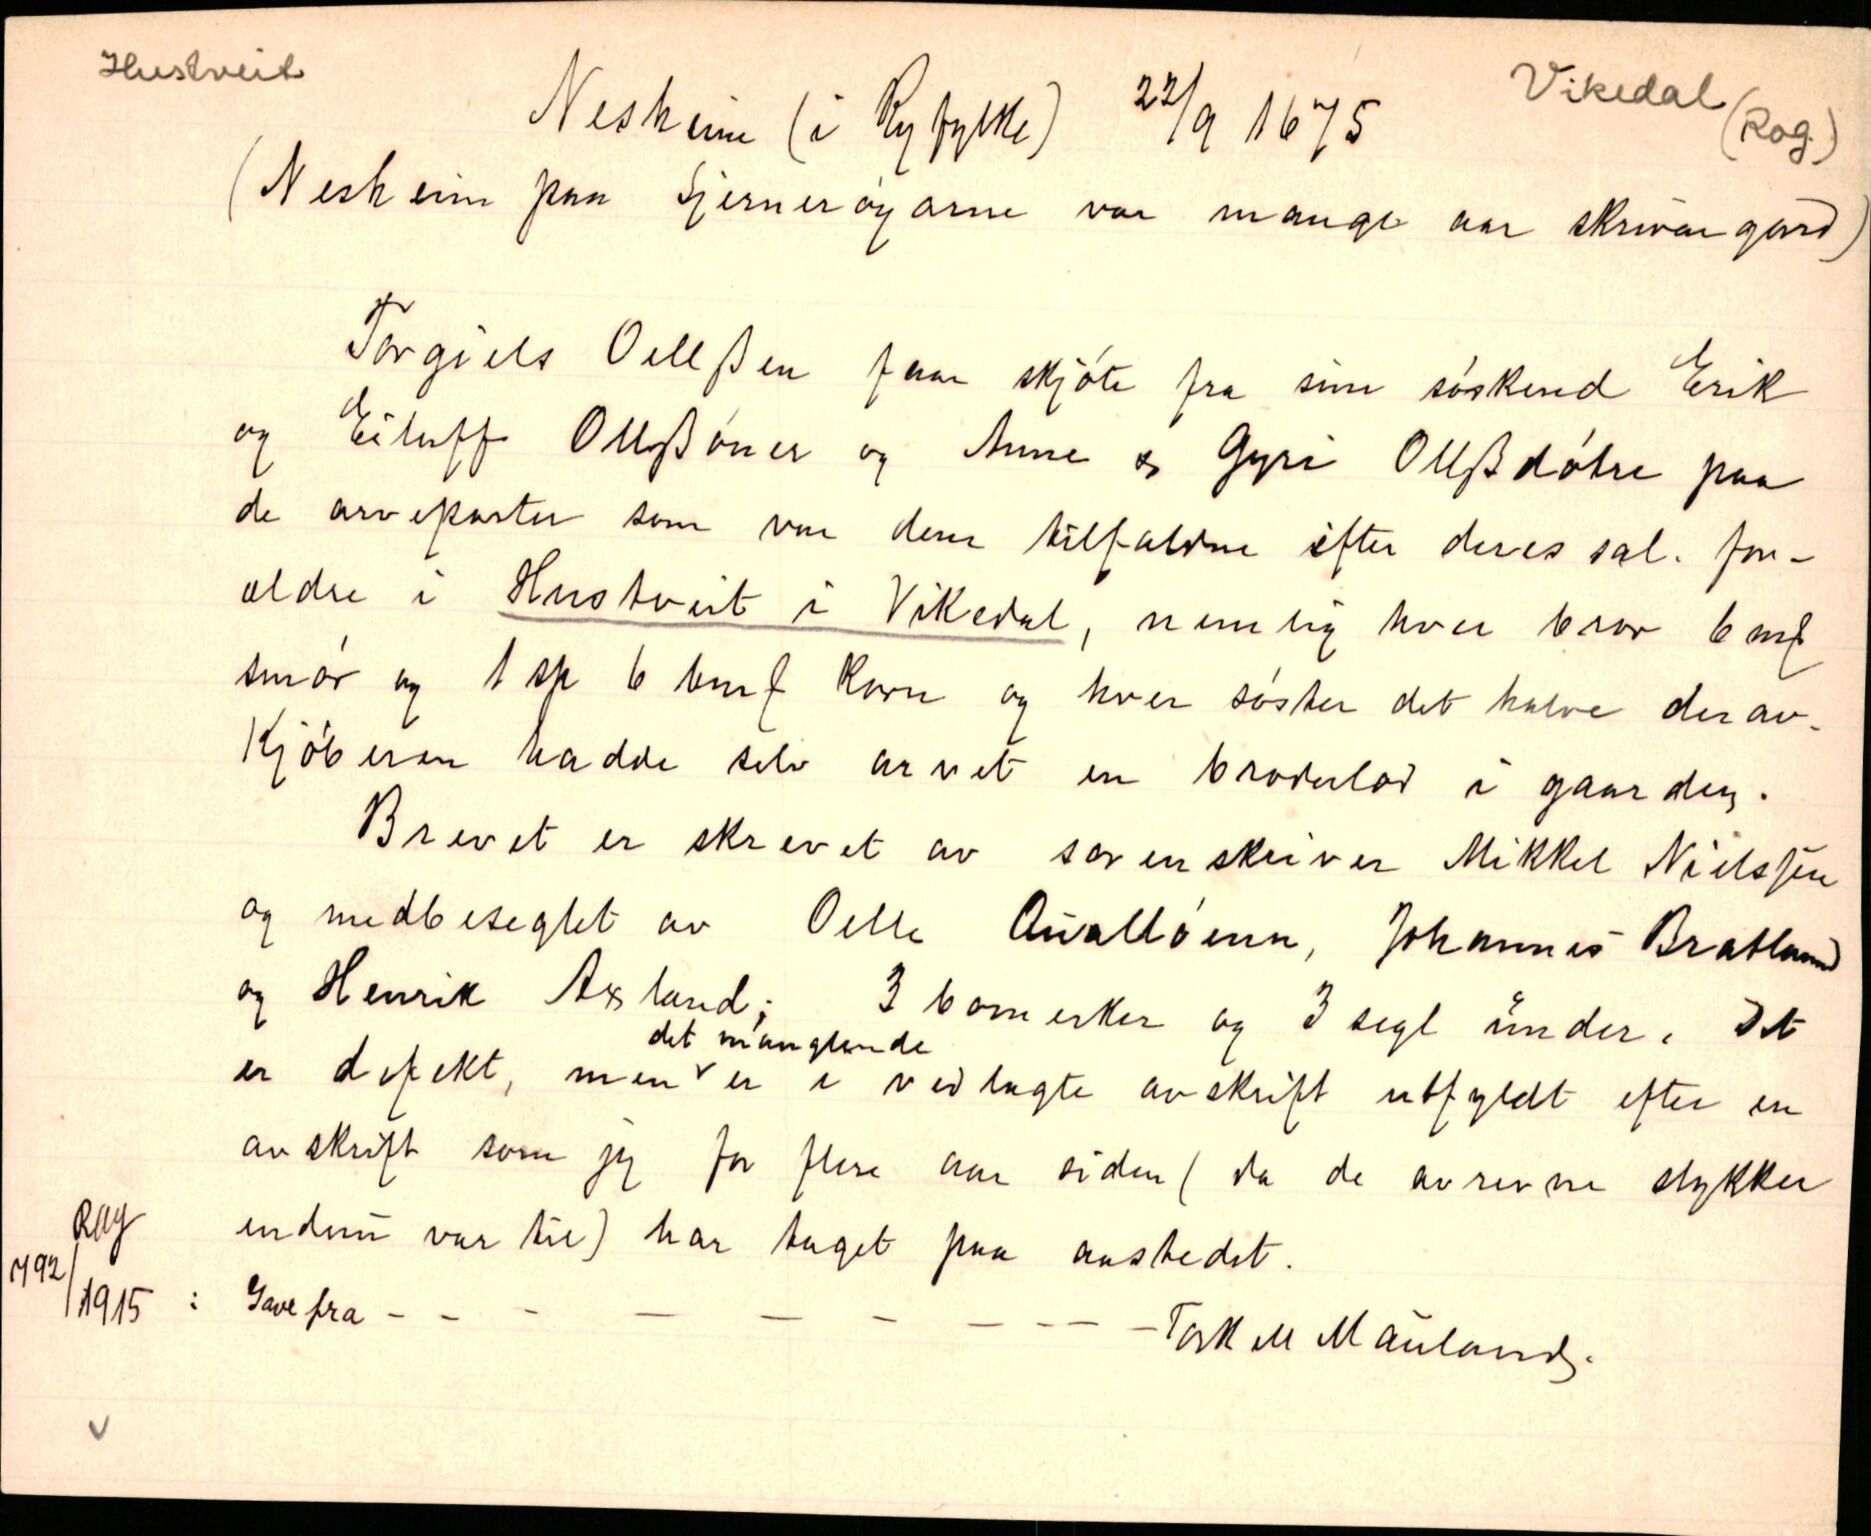 Hustveit
Vikedal
(Rog.)
Nesheim (i Ryfylke) 22/9 1675
(Nesheim paa Sjernerøyarne var mange aar skrivargard)
Torgiels Oellßen faar skjóte fra sine sóskend Erik
og Eiluff Ollßóner og Anne & Gyri Ollßdótre paa
de arveparter som var dem tilfaldne efter deres sal. for-
ældre i Hustveit i Vikedal, nemlig hver bror 6 mf
smór og 1 sp 6 bmf korn og hver sóster det halve derav.
Kjóberen hadde selv arvet en broderlod i gaarden.
Brevet er skrevet av sorenskriver Mikkel Nielsſen
og medbeseglet av Oelle Qualloenn, Johannes Bratland
og Henrik Axland; 3 bomerker og 3 segl under. Det
det manglende
er defekt, men v er i vedlagte avskrift utfyldt efter en
avskrift som jeg for flere aar siden (da de avrevne stykker
endnu var til) har taget paa aastedet.
Rog
792/1915 : Gave fra - - - - - - - - - - Torkell Mauland.
v